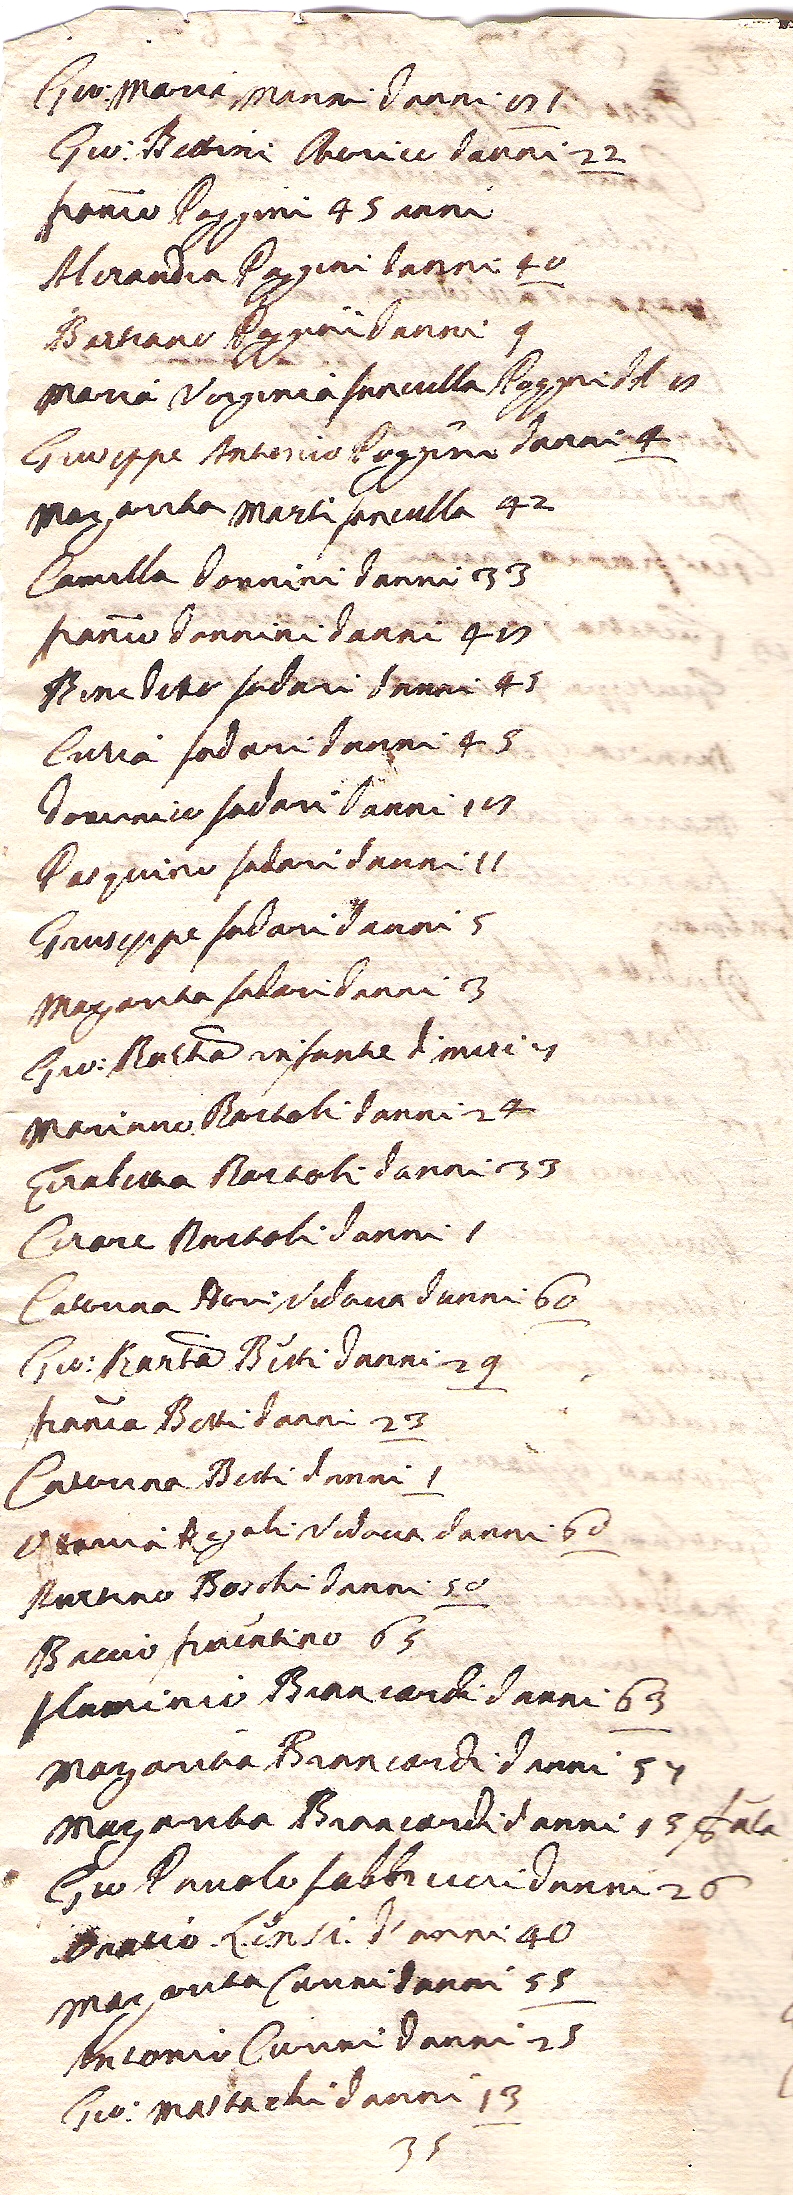 Gio: Maria Nanni d'anni 71
Gio: Bettini Cherico d'anni 22
franco Poggini 45 anni
Alesandra Poggini d'anni 40
Bastiano Poggini d'anni 9
Maria Virginia fanciulla Poggini d'A 17
Giuseppe Antonio Poggini d'anni 4
Margarita Marti fanciulla 42
Camilla Dannini d'anni 33
franco Dannini d'anni 47
Benedetto fadari d'anni 45
Curia fadari d'anni 45
Domenico fadari d'anni 17
Pasquino fadari d'anni 11
Giuseppe fadari d'anni 5
Margarita fadari d'anni 3
Gio: Batta infante di mesi 7
Mariano Bartoli d'anni 24
Elisabetta Bartoli d'anni 33
Cesare Bartoli d'anni 1
Caterina vidova d'anni 60
Gio: Batta Betti d'anni 29
franca Betti d'anni 23
Caterina Betti d'anni 1
vidova d'anni 60
Boschi d'anni 50
Baccio fiorentino 65
flaminio Brancardi d'anni 63
Margarita Brancardi d'anni 57
Margarita Brancardi d'anni 15
Gio Pauolo fabbrucci d'anni 26
Oratio d'anni 40
Margarita Cianni d'anni 55
Antonio Cianni d'anni 25
Gio: Mastachi d'anni 13
35